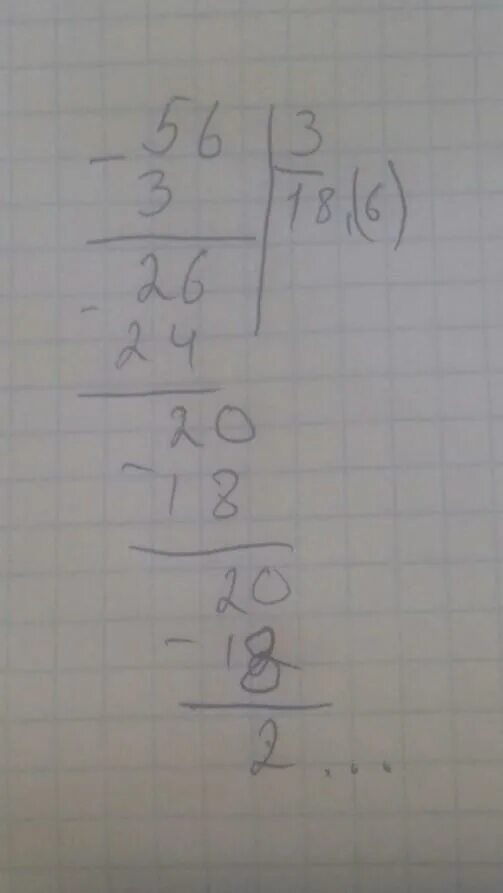 - 56 | 3
3 | 18,(6)
26
- 24
20
- 18
20
- 18
2 ...